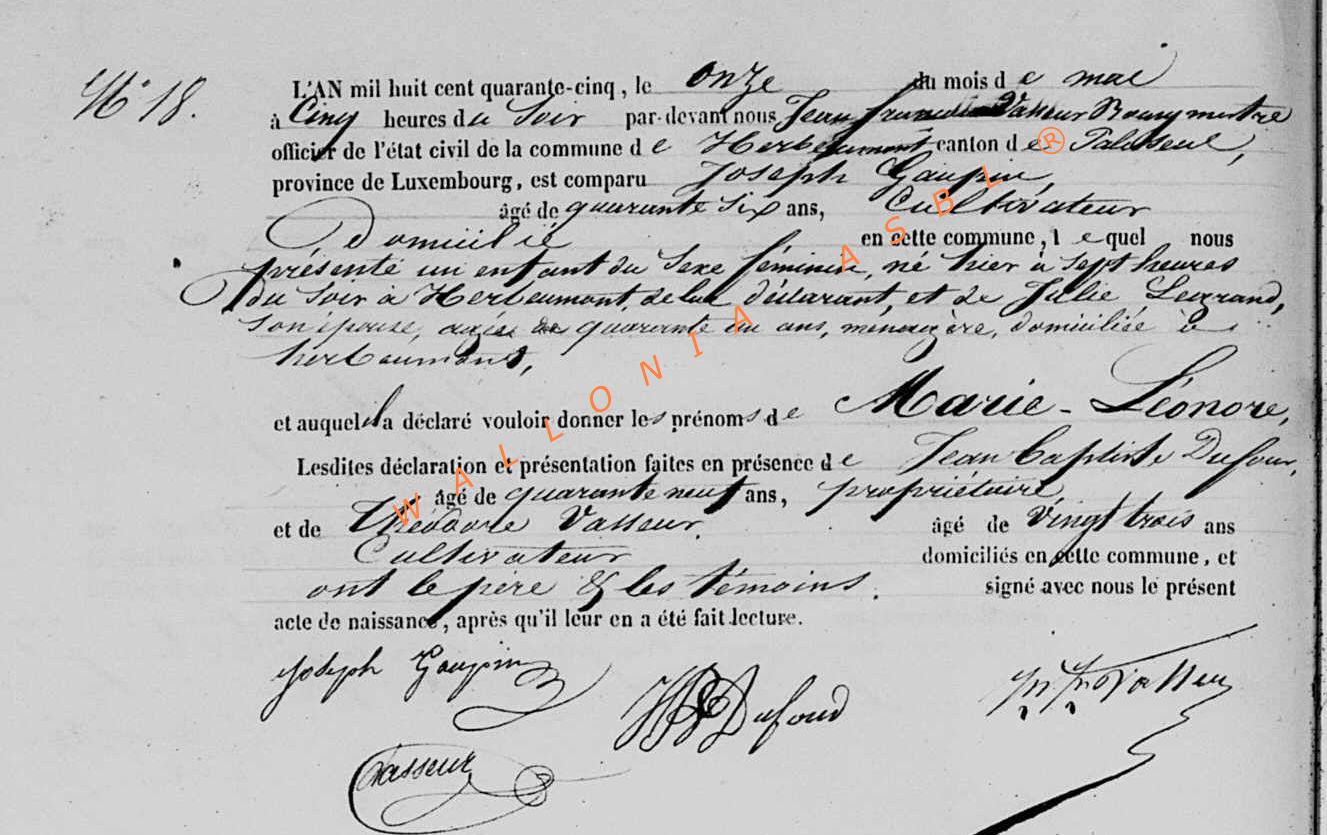 N° 18.
L'AN mil huit cent quarante-cinq, le onze du mois de mai
à Cinq heures du Soir par-devant nous Jean françois Vasseur Bourgmestre
officier de l'état civil de la commune de Herbeumont canton de Paliseul,
province de Luxembourg, est comparu Joseph Goupin,
âgé de quarante six ans, Cultivateur
domicilié en cette commune, lequel nous
présenté un enfant du sexe féminin, né hier à sept heures
du soir à Herbeumont, de lui déclarant, et de Julie Legrand,
son épouse, agée de quarante un ans, menagère, domiciliée à
herbeumont,
et auquel il a déclaré vouloir donner les prénoms de Marie-Léonore,
Lesdites déclaration et présentation faites en présence de Jean Baptiste Dufour,
âgé de quarante neuf ans, propriétaire,
et de Théodore Vasseur, âgé de vingt trois ans
Cultivateur domiciliés en cette commune, et
ont le père & les témoins. signé avec nous le présent
acte de naissance, après qu'il leur en a été fait lecture.
Joseph Goupin
Dufour
Vasseur
Vasseur
WALLONIA ASBL ®